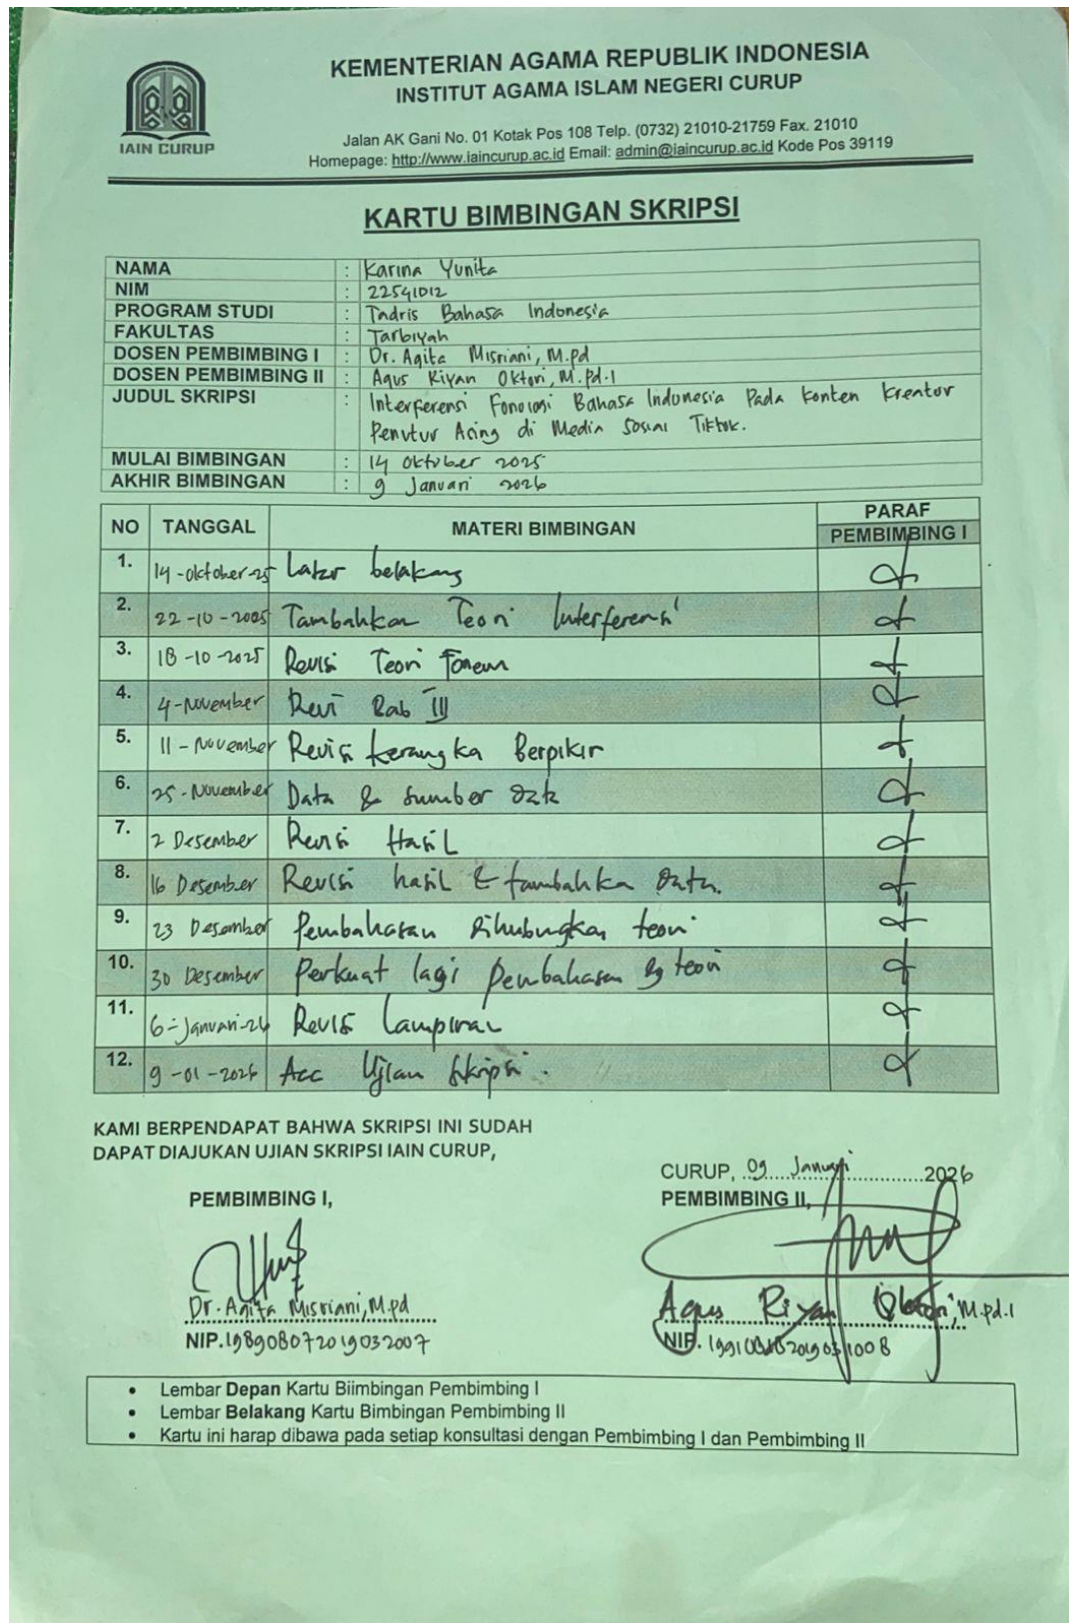 KEMENTERIAN AGAMA REPUBLIK INDONESIA
INSTITUT AGAMA ISLAM NEGERI CURUP
IAIN CURUP
Jalan AK Gani No. 01 Kotak Pos 108 Telp. (0732) 21010-21759 Fax. 21010
Homepage: http://www.iaincurup.ac.id Email: admin@iaincurup.ac.id Kode Pos 39119
KARTU BIMBINGAN SKRIPSI
NAMA : Karina Yunita
NIM : 22541012
PROGRAM STUDI : Tadris Bahasa Indonesia
FAKULTAS : Tarbiyah
DOSEN PEMBIMBING I : Dr. Agita Misriani, M.pd
DOSEN PEMBIMBING II : Agus Riyan Oktori, M.pd.I
JUDUL SKRIPSI : Interferensi Fonologi Bahasa Indonesia Pada Konten Kreator
Penutur Asing di Media Sosial Tiktok.
MULAI BIMBINGAN : 14 Oktober 2025
AKHIR BIMBINGAN : 9 Januari 2026
NO TANGGAL MATERI BIMBINGAN PARAF
PEMBIMBING I
1. 14-oktober-25 Latar belakang
2. 22-10-2005 Tambahkan Teori Interferensi
3. 18-10-2025 Revisi Teori Fonem
4. 4-November Revi Bab III
5. 11-November Revisi kerangka Berpikir
6. 25-November Data & sumber
7. 2 Desember Revisi Hasil
8. 16 Desember Revisi hasil & tambahka data.
9. 23 Desember Pembahasan dihubungkan teori
10. 30 Desember Perkuat lagi pembahasan dg teori
11. 6-Januari-26 Revisi Lampiran
12. 9-01-2026 Acc Ujian Skripsi.
KAMI BERPENDAPAT BAHWA SKRIPSI INI SUDAH
DAPAT DIAJUKAN UJIAN SKRIPSI IAIN CURUP,
CURUP, 09 Januari 2026
PEMBIMBING I, PEMBIMBING II,
Dr. Agita Misriani, M.pd Agus Riyan Oktori, M.pd.I
NIP. 198908072019032007 NIP.
• Lembar Depan Kartu Biimbingan Pembimbing I
• Lembar Belakang Kartu Bimbingan Pembimbing II
• Kartu ini harap dibawa pada setiap konsultasi dengan Pembimbing I dan Pembimbing II